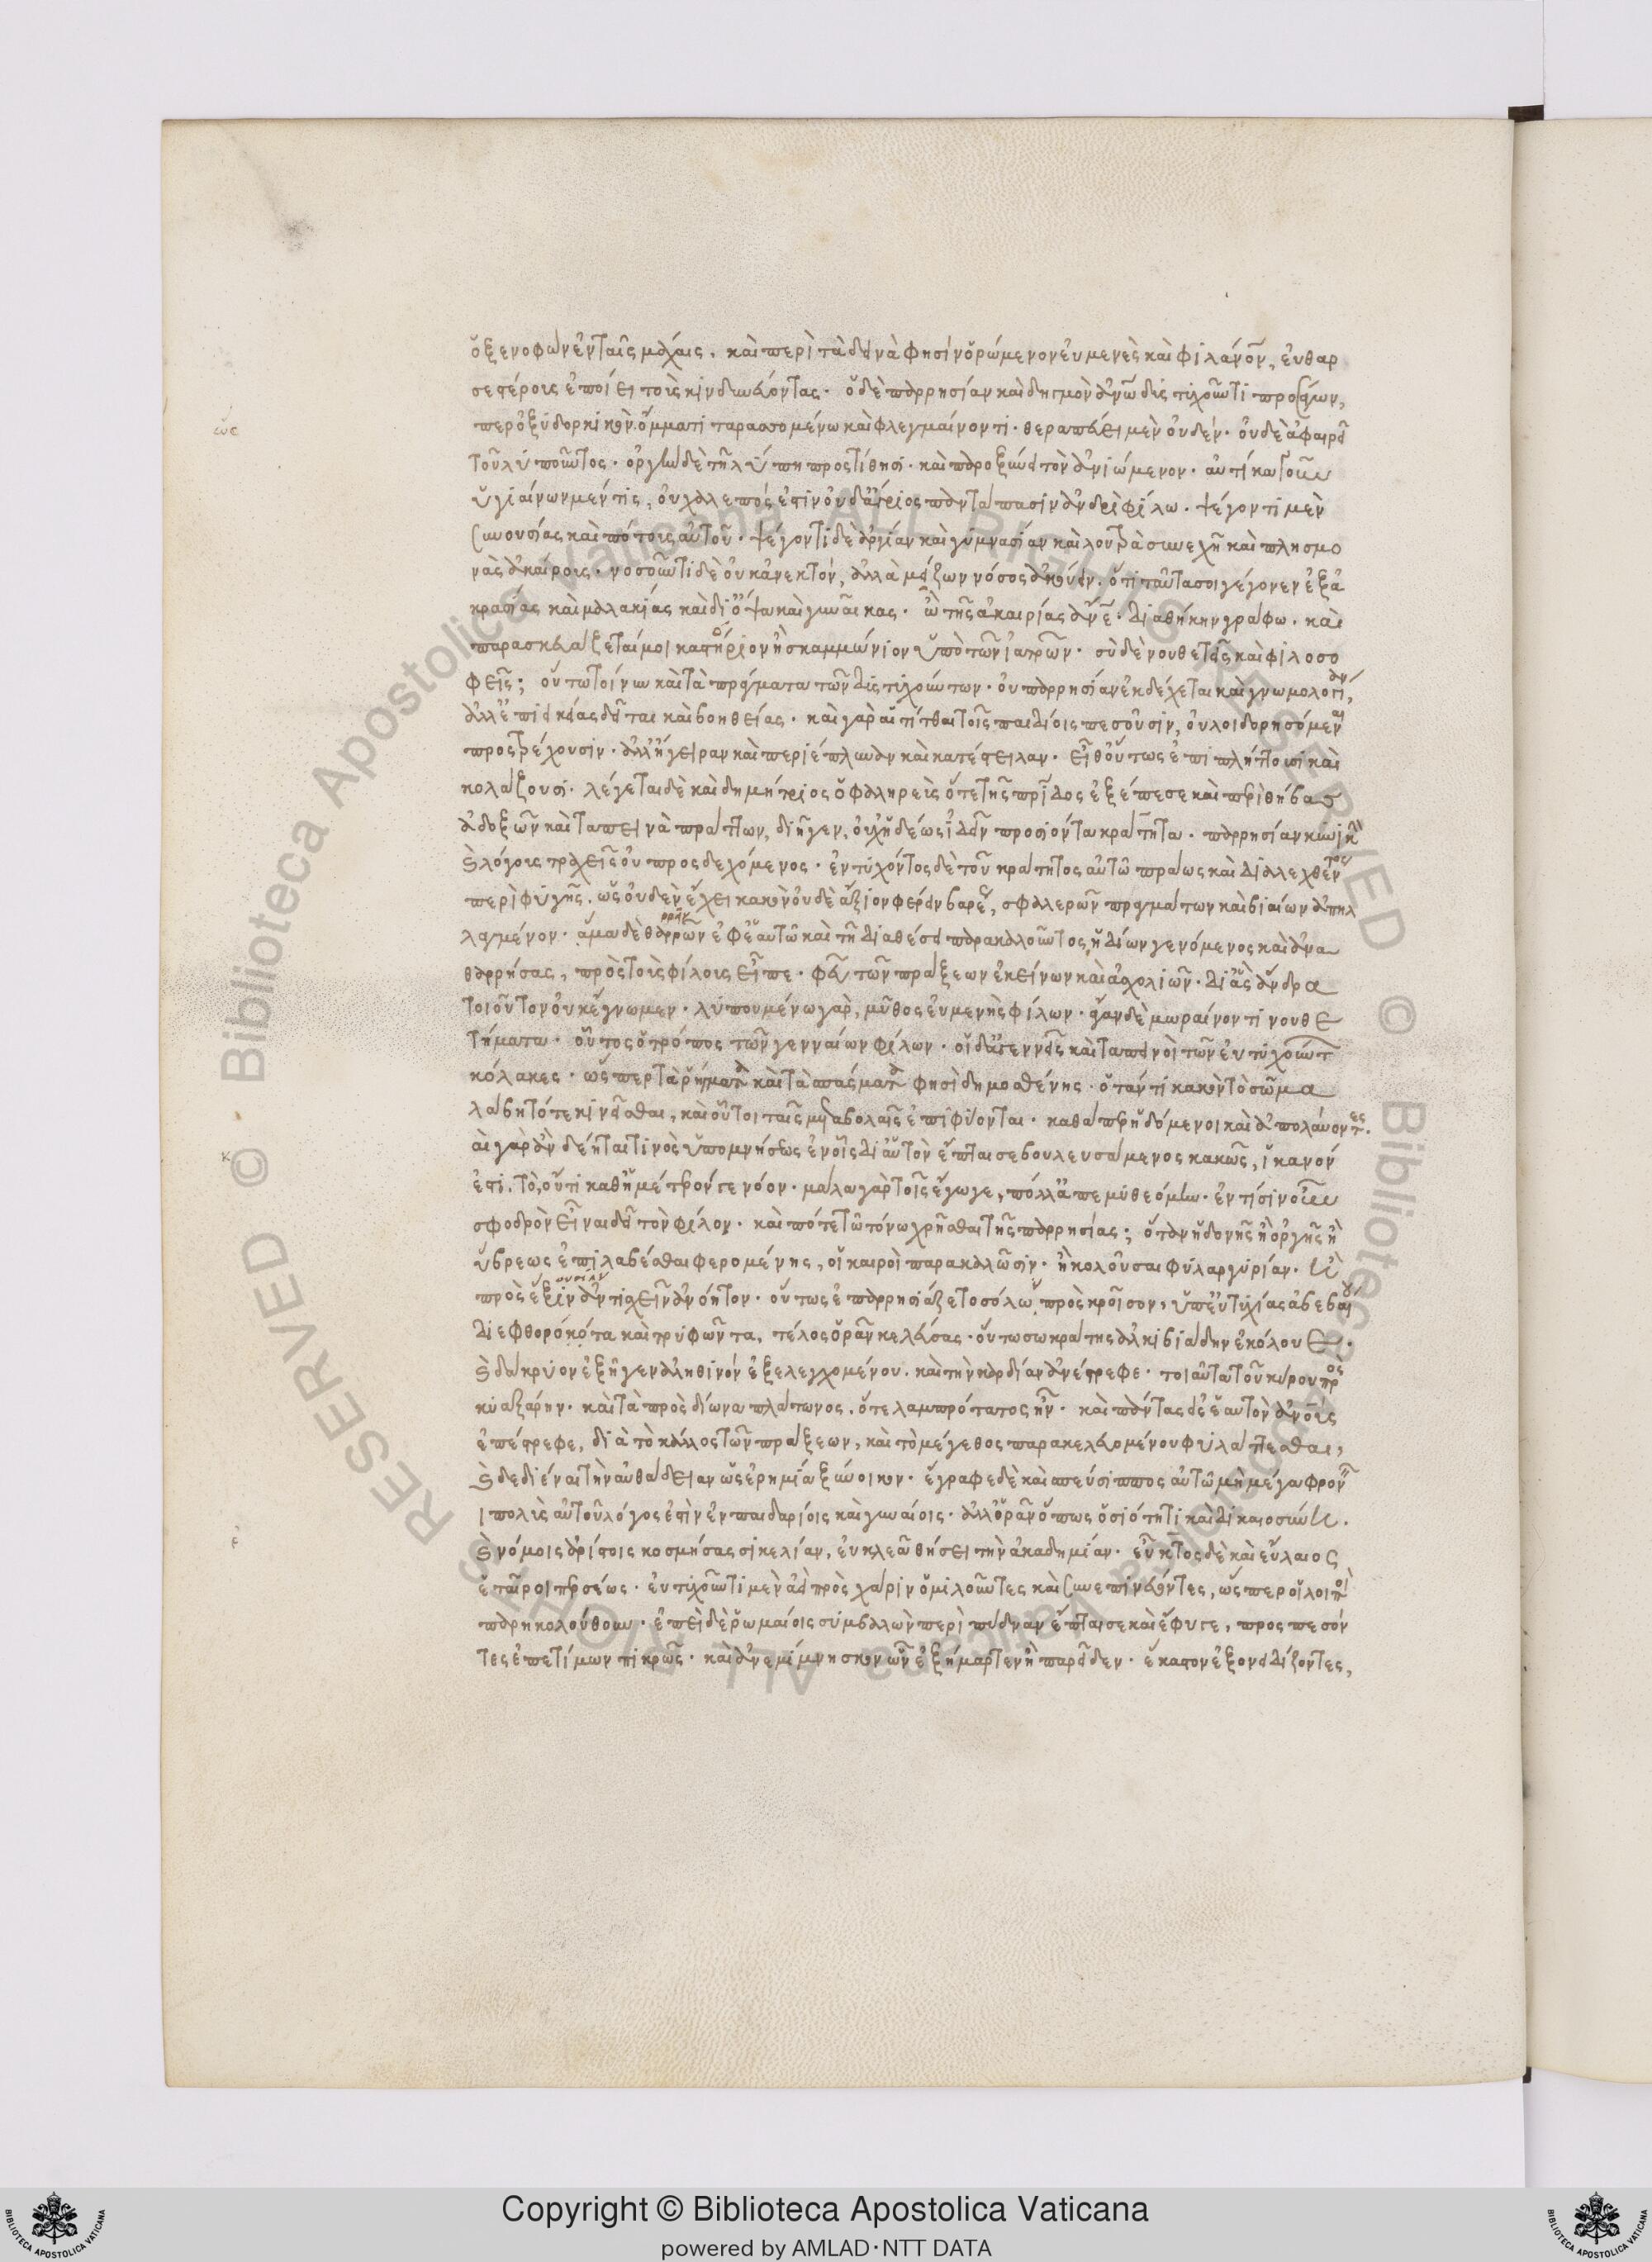 ὁ ξενοφῶν ἐν ταῖς μάχαις. καὶ περὶ τὰ δεινὰ φησὶν ὁρώμενον εὐμενὲς καὶ φιλάνθρωπον, εὐθαρ
σεστέρους ἐποίει τοὺς κινδυνεύοντας. ὁ δὲ παρρησίαν καὶ δηγμὸν ἀνθρώπῳ δυστυχοῦντι προσάγων,
ὥσπερ ὀξυδορκικὸν ὄμματι ταρασσομένω καὶ φλεγμαίνοντι. θεραπεύει μὲν οὐδέν. οὐδὲ ἀφαιρεῖ
τοῦ λυποῦντος. ὀργὴν δὲ τῇ λύπη προστίθησι. καὶ παροξύνει τὸν ἀνιώμενον. αὐτίκα γοῦν
ὑγιαίνων μέν τις, οὐ χαλεπός ἐστιν οὐδ' ἄγριος παντάπασιν ἀνδρὶ φίλω. ψέγοντι μὲν
συνουσίας καὶ πότους αὐτοῦ. ψέγοντι δὲ ἀργίαν καὶ γυμνασίαν καὶ λουτρὰ συνεχῆ καὶ πλησμο
νὰς ἀκαίρους. νοσοῦντι δὲ οὐκ ἀνεκτὸν, ἀλλὰ μείζων νόσος ἀκούειν. ὅτι ταῦτά σοι γέγονεν ἐξ ἀ
κρασίας καὶ μαλακίας καὶ δι' ὄψον καὶ γυναῖκας. ὢ τῆς ἀκαιρίας ἄνθρωπε. διαθήκην γράφω. καὶ
παρασκευάζεταί μοι καστόριον ἢ σκαμμώνιον ὑπὸ τῶν ἰατρῶν. σὺ δὲ νουθετεῖς καὶ φιλοσο
φεῖς; οὕτω τοίνυν καὶ τὰ πράγματα τῶν δυστυχούντων. οὐ παρρησίαν ἐκδέχεται καὶ γνωμολογίαν,
ἀλλ' ἐπιεικείας δεῖται καὶ βοηθείας. καὶ γὰρ αἱ τίτθαι τοῖς παιδίοις πεσοῦσιν, οὐ λοιδορησόμεναι
προστρέχουσιν. ἀλλ' ἤγειραν καὶ περιέπλυναν καὶ κατέστειλαν. εἶθ' οὕτως ἐπιπλήττουσι καὶ
κολάζουσι. λέγεται δὲ καὶ δημήτριος ὁ φαληρεὺς ὅτε τῆς πατρίδος ἐξέπεσε καὶ περὶ θήβας
ἀδοξῶν καὶ ταπεινὰ πράττων, διῆγεν, οὐχ ἡδέως ἰδεῖν προσιόντα κράτητα. παρρησίαν κυνικὴν
καὶ λόγους τραχεῖς οὐ προσδεχόμενος. ἐντυχόντος δὲ τοῦ κράτητος αὐτῶ πράως καὶ διαλεχθέντος
περὶ φυγῆς. ὡς οὐδὲν ἔχει κακὸν οὐδὲ ἄξιον φέρειν βαρέως, σφαλερῶν πραγμάτων καὶ βιαίων ἀπηλ
λαγμένον. ἅμα δὲ θαρρῶν ἐφ' ἑαυτῶ καὶ τῆ διαθέσει παρακαλοῦντος, ἡδίων γενόμενος καὶ ἀνα
θαρρήσας, πρὸς τοὺς φίλους εἶπε. φεῦ τῶν πράξεων ἐκείνων καὶ ἀσχολιῶν. δι' ἃς ἄνδρα
τοιοῦτον οὐκ ἔγνωμεν. λυπουμένω γὰρ, μῦθος εὐμενὴς φίλων. ἄγαν δὲ μωραίνοντι νουθε
τήματα. οὗτος ὁ τρόπος τῶν γενναίων φίλων. οἱ δὲ ἀγεννεῖς καὶ ταπεινοὶ τῶν εὐτυχούντ
κόλακες. ὥσπερ τὰ ῥήγματα καὶ τὰ σπάσματα φησὶ δημοσθένης. ὅταν τι κακὸν τὸ σῶμα
λάβη τότε κινεῖσθαι, καὶ οὗτοι ταῖς μεταβολαῖς ἐπιφύονται. καθάπερ ἡδόμενοι καὶ ἀπολαύοντες.
αἱ γὰρ ἂν δέηται τινὸς ὑπομνήσεως ἐν οἷς δι' αὑτὸν ἔπταισε βουλευσάμενος κακῶς, ἱκανόν
ἐστι. τὸ, οὔτι καθ' ἡμέτερόν γε νόον. μάλα γὰρ τοῖς ἔγωγε, πόλλ' ἀπεμυθεόμην. ἐν τίσιν οὖν
σφοδρὸν εἶναι δεῖ τὸν φίλον. καὶ πότε τῶ τόνω χρῆσθαι τῆς παρρησίας; ὅταν ἡδονῆς ἢ ὀργῆς ἢ
ὕβρεως ἐπιλαβέσθαι φερομένης, οἱ καιροὶ παρακαλῶσιν. ἢ κολοῦσαι φιλαργυρίαν. ἢ
προσεξιν ἀντισχεῖν ἀνόητον. οὕτως ἐπαρρησιάζετο σόλων πρὸς κροῖσον, ὑπ' εὐτυχίας ἀβεβαίου
διεφθορότα καὶ τρυφῶντα, τέλος ὁρᾶν κελεύσας. οὕτω σωκράτης ἀλκιβιάδην ἐκόλουε.
καὶ δάκρυον ἐξῆγεν ἀληθινόν ἐξελεγχομένου. καὶ τὴν καρδίαν ἀνέστρεφε. τοιαῦτα τοῦ κύρου πρὸς
κυαξάρην. καὶ τὰ πρὸς δίωνα πλάτωνος. ὅτε λαμπρότατος ἦν. καὶ πάντας εἰς ἑαυτὸν ἀνθρώπους
ἐπέστρεφε, διὰ τὸ κάλλος τῶν πράξεων, καὶ τὸ μέγεθος παρακελευομένου φυλάττεσθαι,
καὶ δεδιέναι τὴν αὐθάδειαν ὡς ἐρημία ξύνοικον. ἔγραφε δὲ καὶ σπεύσιππος αὐτῶ μὴ μέγα φρονεῖν
ι πολὺς αὐτοῦ λόγος ἐστὶν ἐν παιδαρίοις καὶ γυναίοις. ἀλλ' ὁρᾶν ὅπως ὁσιότητι καὶ δικαιοσύνη.
καὶ νόμοις ἀρίστοις κοσμήσας σικελίαν, εὐκλεᾶ θήσει τὴν ἀκαδημίαν. εὖκτος δὲ καὶ εὔλαιος
ἑταῖροι περσέως. εὐτυχοῦντι μὲν ἀεὶ πρὸς χάριν ὁμιλοῦντες καὶ συνεπινεύοντες, ὥσπερ οἱ λοιποὶ
παρηκολούθουν. ἐπεὶ δὲ ῥωμαίοις συμβαλὼν περὶ πύδναν ἔπταισε καὶ ἔφυγε, προσπεσόν
τες ἐπετίμων πικρῶς. καὶ ἀνεμίμνησκον ὧν ἐξήμαρτεν ἢ παρεῖδεν. ἕκαστον ἐξονειδίζοντες,